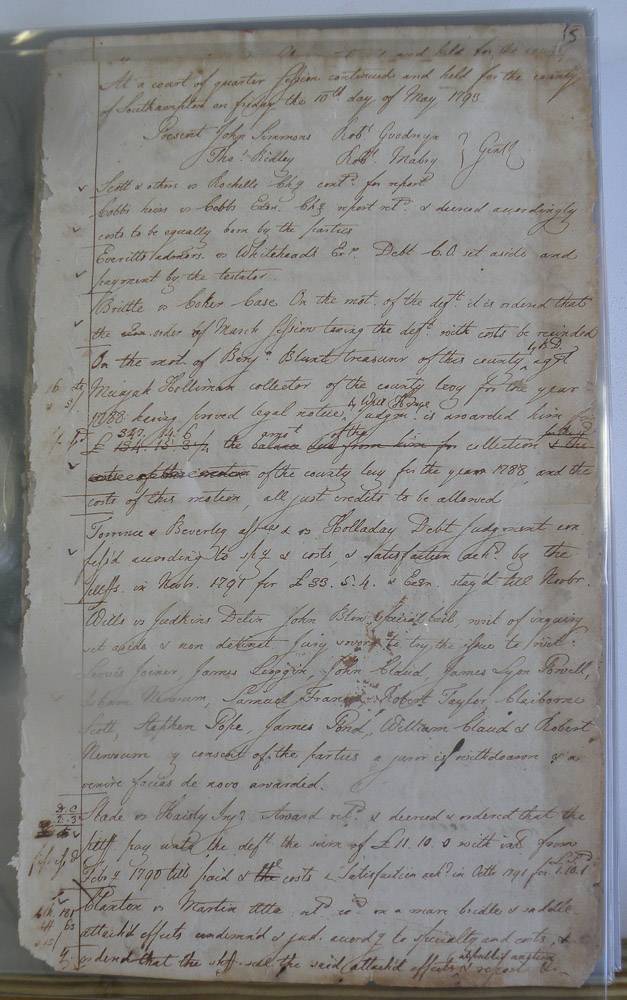 15
and held for the county
At a court of quarter session continued and held for the county
of Southampton on friday the 10th day of May 1793
Present John Simmons Robt Goodwyn
Thos Ridley Robt Mabry } Gentl
Scott & others vs Rochelle Chy contd for report
Cobbs heirs vs Cobbs Exon. Chy report retd & decreed accordingly
costs to be equally born by the parties
Everitts admors. vs Whiteheads Exr. Debt C.O set aside and
payment by the testator
Brittle vs Coker Case On the mot. of the deft it is ordered that
the order of March session taxing the deft with costs be rescinded
On the mot. of Benjn Blunt treasurer of this county agst
Micajah Holliman collector of the county levy for the year
1788 having proved legal notice, Judgmt is awarded him for
£ 134. 15. 3 the amot of the collection
of the county levy for the year 1788 and the
costs of this motion, all just credits to be allowed
Torrence & Beverley vs Holladay Debt Judgment con
fess'd according to spy & costs & satisfaction ackd by the
pltffs. in Novbr. 1791 for £33. 5. 4. & Exon. stay'd till Novbr.
Wills vs Judkins Detin John Blow Special bail, writ of inquiry
set aside & non detinet Jury sworn to try the issue to wit
Lewis Joiner, James Scoggin, John Claud, James Lyon Powell,
Newsum, Samuel Francis, Robert Taylor, Claiborne
Scott, Stephen Pope, James Pond, William Claud & Robert
Newsum by consent of the parties a juror is withdrawn & a
venire facias de novo awarded.
Slade vs Harty Inj Award retd & decreed & ordered that the
pltff pay unto the deft the sum of £11. 10. 0 with int from
1790 till paid & costs & Satisfaction ackd in Octo 1791 for
Clanton vs Martin Atta retd on a mare bridle & saddle
attach'd effects condemn'd & jud. accordg to specialty and costs, &
ordered that the shff sell the said attach'd effects at publick auction & report &c.